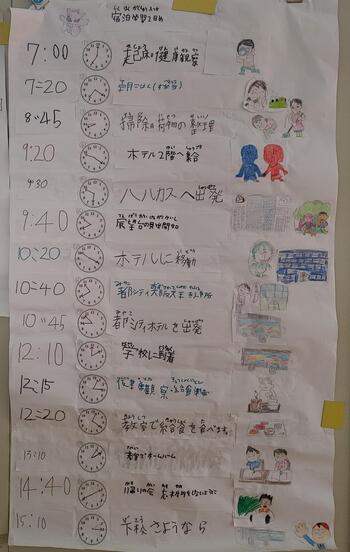 宿泊学習2日目
7:00 起床 健康観察
7:20 朝ごはん(弁当)
8:45 掃除 荷物の整理
9:20 ホテル2階へ
9:30 ハルカスへ出発
9:40 展望台
10:20 ホテルに移動
10:40 都シティ
10:45 都シティホテルを出発
12:10 学校に到着
12:15 健康観察
12:20 教室で給食を食べます。
13:10 教室でホームルーム
14:40 帰りの会
15:10 下校 さようなら